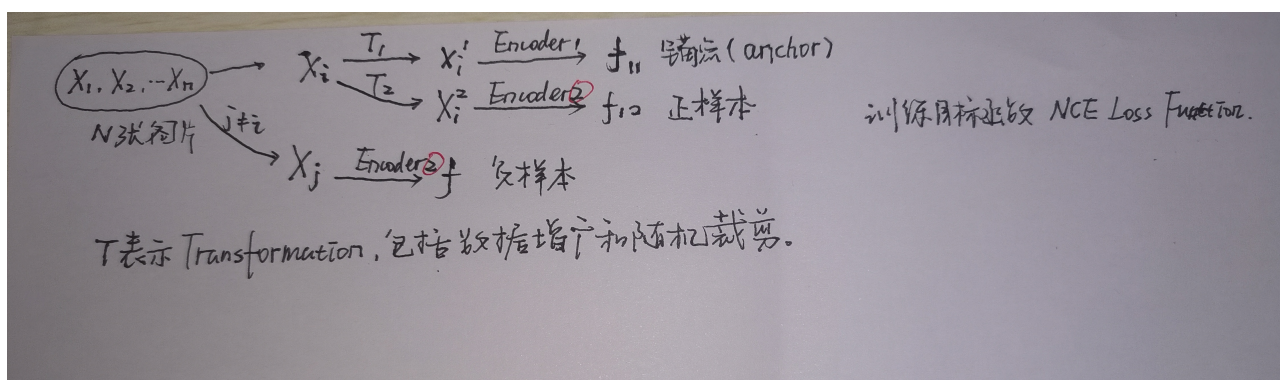 X₁, X₂, ...Xₙ → Xᵢ —T₁→ Xᵢ¹ —Encoder₁→ f₁₁ 锚点(anchor)
T₂→ Xᵢ² —Encoder②→ f₁₂ 正样本
训练目标函数 NCE Loss Function.
N张图片 j≠i
Xⱼ —Encoder②→ f 负样本
T表示Transformation,包括数据增广和随机裁剪。